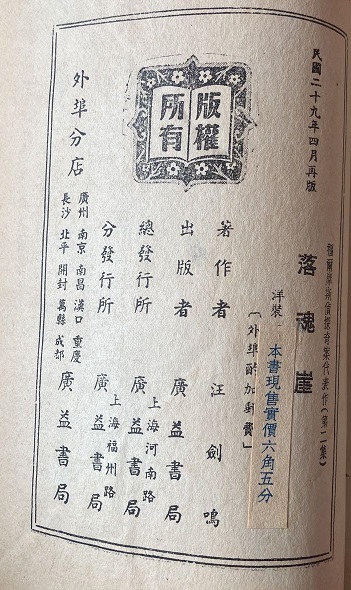 民國二十九年四月再版
福爾摩斯偵探奇案代表作(第二集)
落魂崖
洋裝
本書現售實價六角五分
「外埠酌加郵費」
版權所有
著作者 汪劍鳴
出版者 廣益書局
總發行所 上海河南路 廣益書局
分發行所 上海福州路 廣益書局
外埠分店
廣州 南京 南昌 漢口 重慶
長沙 北平 開封 萬縣 成都
廣益書局